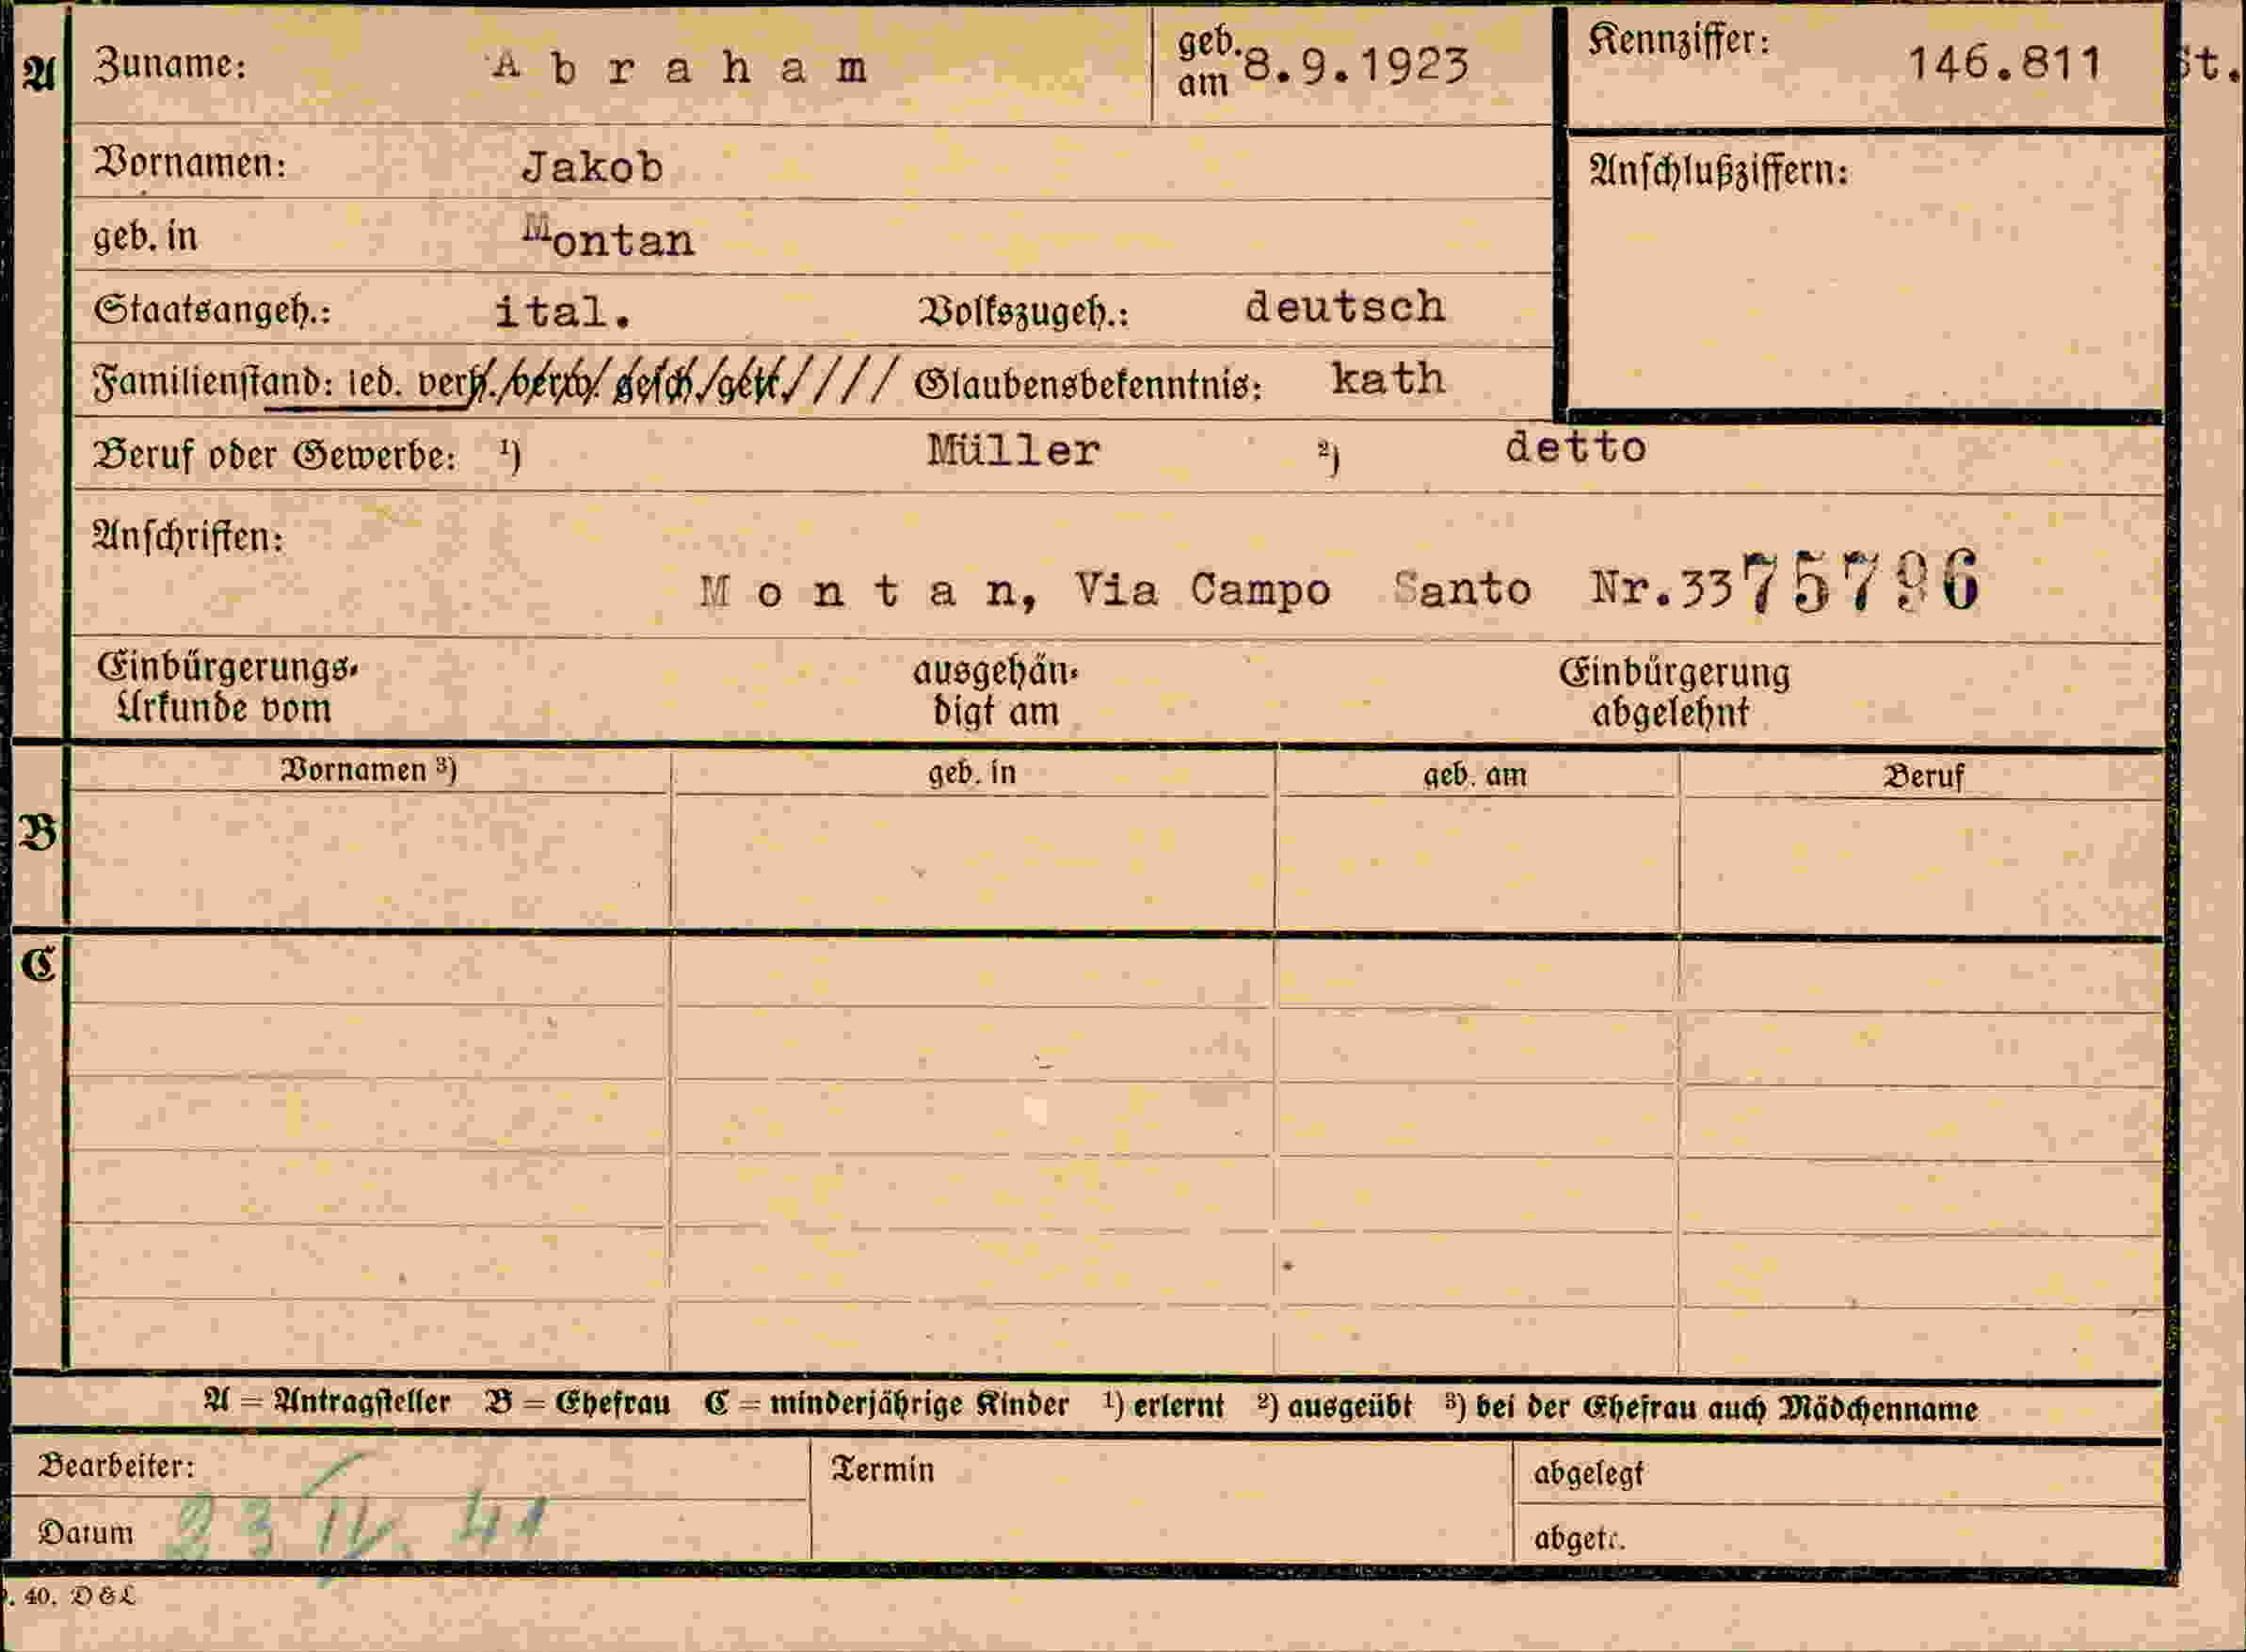 A Zuname: Abraham geb. am 8.9.1923 Kennziffer: 146.811 St.
Vornamen: Jakob Anschlußziffern:
geb. in Montan
Staatsangeh.: ital. Volkszugeh.: deutsch
Familienstand: led. verh. verw. gesch. getr. //// Glaubensbekenntnis: kath
Beruf oder Gewerbe: ¹) Müller ²) detto
Anschriften:
Montan, Via Campo Santo Nr.33 75796
Einbürgerungs- ausgehän- Einbürgerung
Urkunde vom digt am abgelehnt
Vornamen ³) geb. in geb. am Beruf
B
C
A = Antragsteller B = Ehefrau C = minderjährige Kinder ¹) erlernt ²) ausgeübt ³) bei der Ehefrau auch Mädchenname
Bearbeiter: Termin abgelegt
Datum 23 IV. 41 abgetr.
. 40. D&L